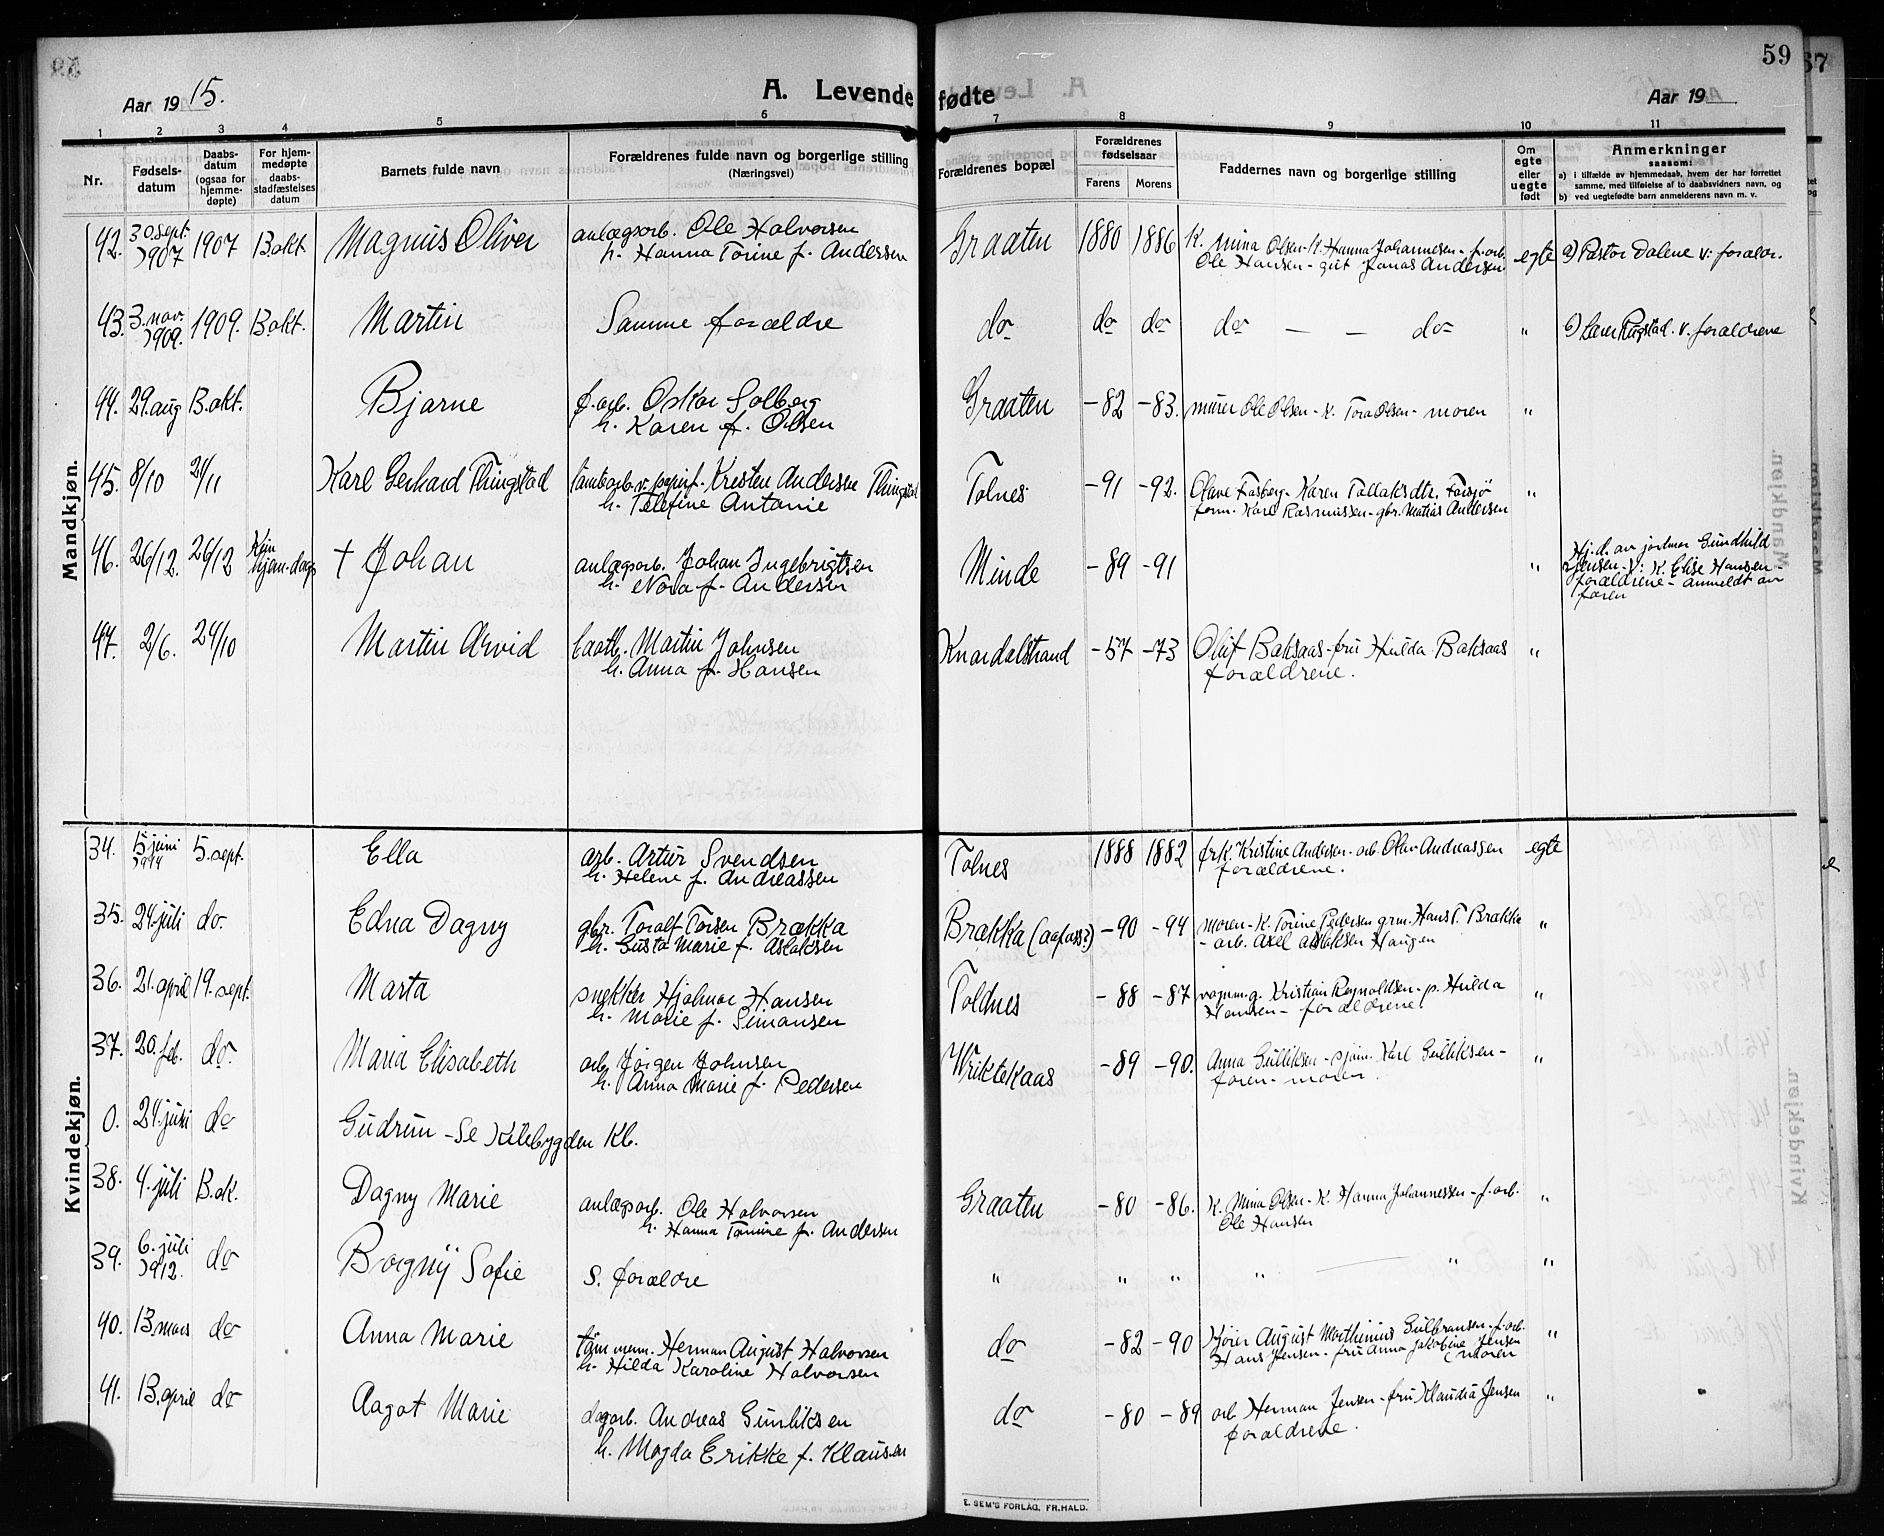 59
Aar 1915.
A. Levende fødte
Aar 19
1 2 3 4 5 6 7 8 9 10 11
Nr.
Fødsels-
datum
Daabs-
datum
(ogsaa for
hjemme-
døpte)
For hjem-
medøpte
daabs-
stadfæstelses
datum
Barnets fulde navn
Forældrenes fulde navn og borgerlige stilling
(Næringsvei)
Forældrenes bopæl
Forældrenes
fødselsaar
Farens Morens
Faddernes navn og borgerlige stilling
Om
egte
eller
uegte
født
Anmerkninger
saasom:
a) i tilfælde av hjemmedaab, hvem der har forrettet
samme, med tilføielse af to daabsvidners navn, og
b) ved uegtefødte barn anmelderens navn m. v.
Mandkjøn.
42. 30 sept. 1907 1907 13. okt. Magnus Oliver anlægsarb. Ole Halvorsen
h. Hanna Torine f. Andersen
Graaten 1880 1886 K. Mina Olsen - K. Hanna Johannesen - f.arb.
Ole Hansen - gut Jonas Andersen egte a) Pastor Dalene v: foraldr.
43. 3. nov. 1909. 1909. 13 okt. Martin Samme forældre do do do do — — do " Rugstad. v. forældrene
44. 29. aug 13. okt. Bjarne f.arb. Oskar Solberg
h. Karen f. Olsen
Graaten -82 -83. murer Ole Olsen - K. Tora Olsen - moren "
45. 8/10 21/11 Karl Gerhard Thingstad Kristen Andersen Thingstad
h. Telefine Antonie
Tolnes -91 -92. Olave Fosberg - Karen Tollaksdtr. Fossjø
form. Karl Rasmussen - gbr. Matias Andersen "
46. 26/12. 26/12 Kun hjem. daap + Johan anlægsarb. Johan Ingebrigtsen
h. Nora f. Andersen
Minde -89 -91 " Hj.d. av jordmor Gundhild
Jensen - V: K. Elise Hansen -
forældrene - anmeldt av
faren
47. 2/6. 24/10 Martin Arvid baatb. Martin Johnsen
h. Anna f. Hansen
Knardalstrand -57 -73 Oluf Baksaas - fru Hulda Baksaas
forældrene. "
Kvindekjøn.
34. 15 juni 1914 5. sept. Ella arb. Artur Svendsen
h. Helene f. Andreassen
Tolnes 1888 1882 frk. Kristine Andersen - arb. Olav Andreassen
forældrene. egte
35. 24. juli do. Edna Dagny gbr. Toralf Torsen Brækka
h. Gusta Marie f. Aslaksen
Brækka -90 -94 moren - K. Torine Pedersen grm. Hans T. Brække
- arb. Axel Aslaksen Haugen "
36. 21. april 19. sept. Marta snekker Hjalmar Hansen
h. Marie f. Simonsen
Toldnes -88 -87 Kristian Reynoldsen - p. Hulda
Hansen - forældrene "
37. 20. feb. do. Maria Elisabeth arb. Jørgen Johnsen
h. Anna Marie f. Pedersen
Wriktekaas -89 -90. Anna Gulliksen - sjøm. Karl Gulliksen -
faren - moren. "
0. 24. juni do Gudrun - se Kilebygden Kb.
38. 4. juli 13. ok. Dagny Marie anlægsarb. Ole Halvorsen
h. Hanna Tomine f. Andersen
Graaten -80 -86. K. Mina Olsen - K. Hanna Johannessen - f.arb.
Ole Hansen "
39. 6. juli 1912. do Borgny Sofie s. forældre " " " " — " "
40. 13. mars do Anna Marie tømmerm. Herman August Halvorsen
h. Hilda Karoline Halvorsen
do -82 -90 August Marthinius Gulbransen - f.arb.
Hans Jensen - fru Anna Jakobine Jensen
(moren "
41. 13. april do Aagot Marie dagarb. Andreas Gunliksen
h. Magda Erikke f. Klausen
do -80 -89 arb Herman Jensen - fru Klaudia Jensen
forældrene. "
E. SEM'S FORLAG, FR.HALD.